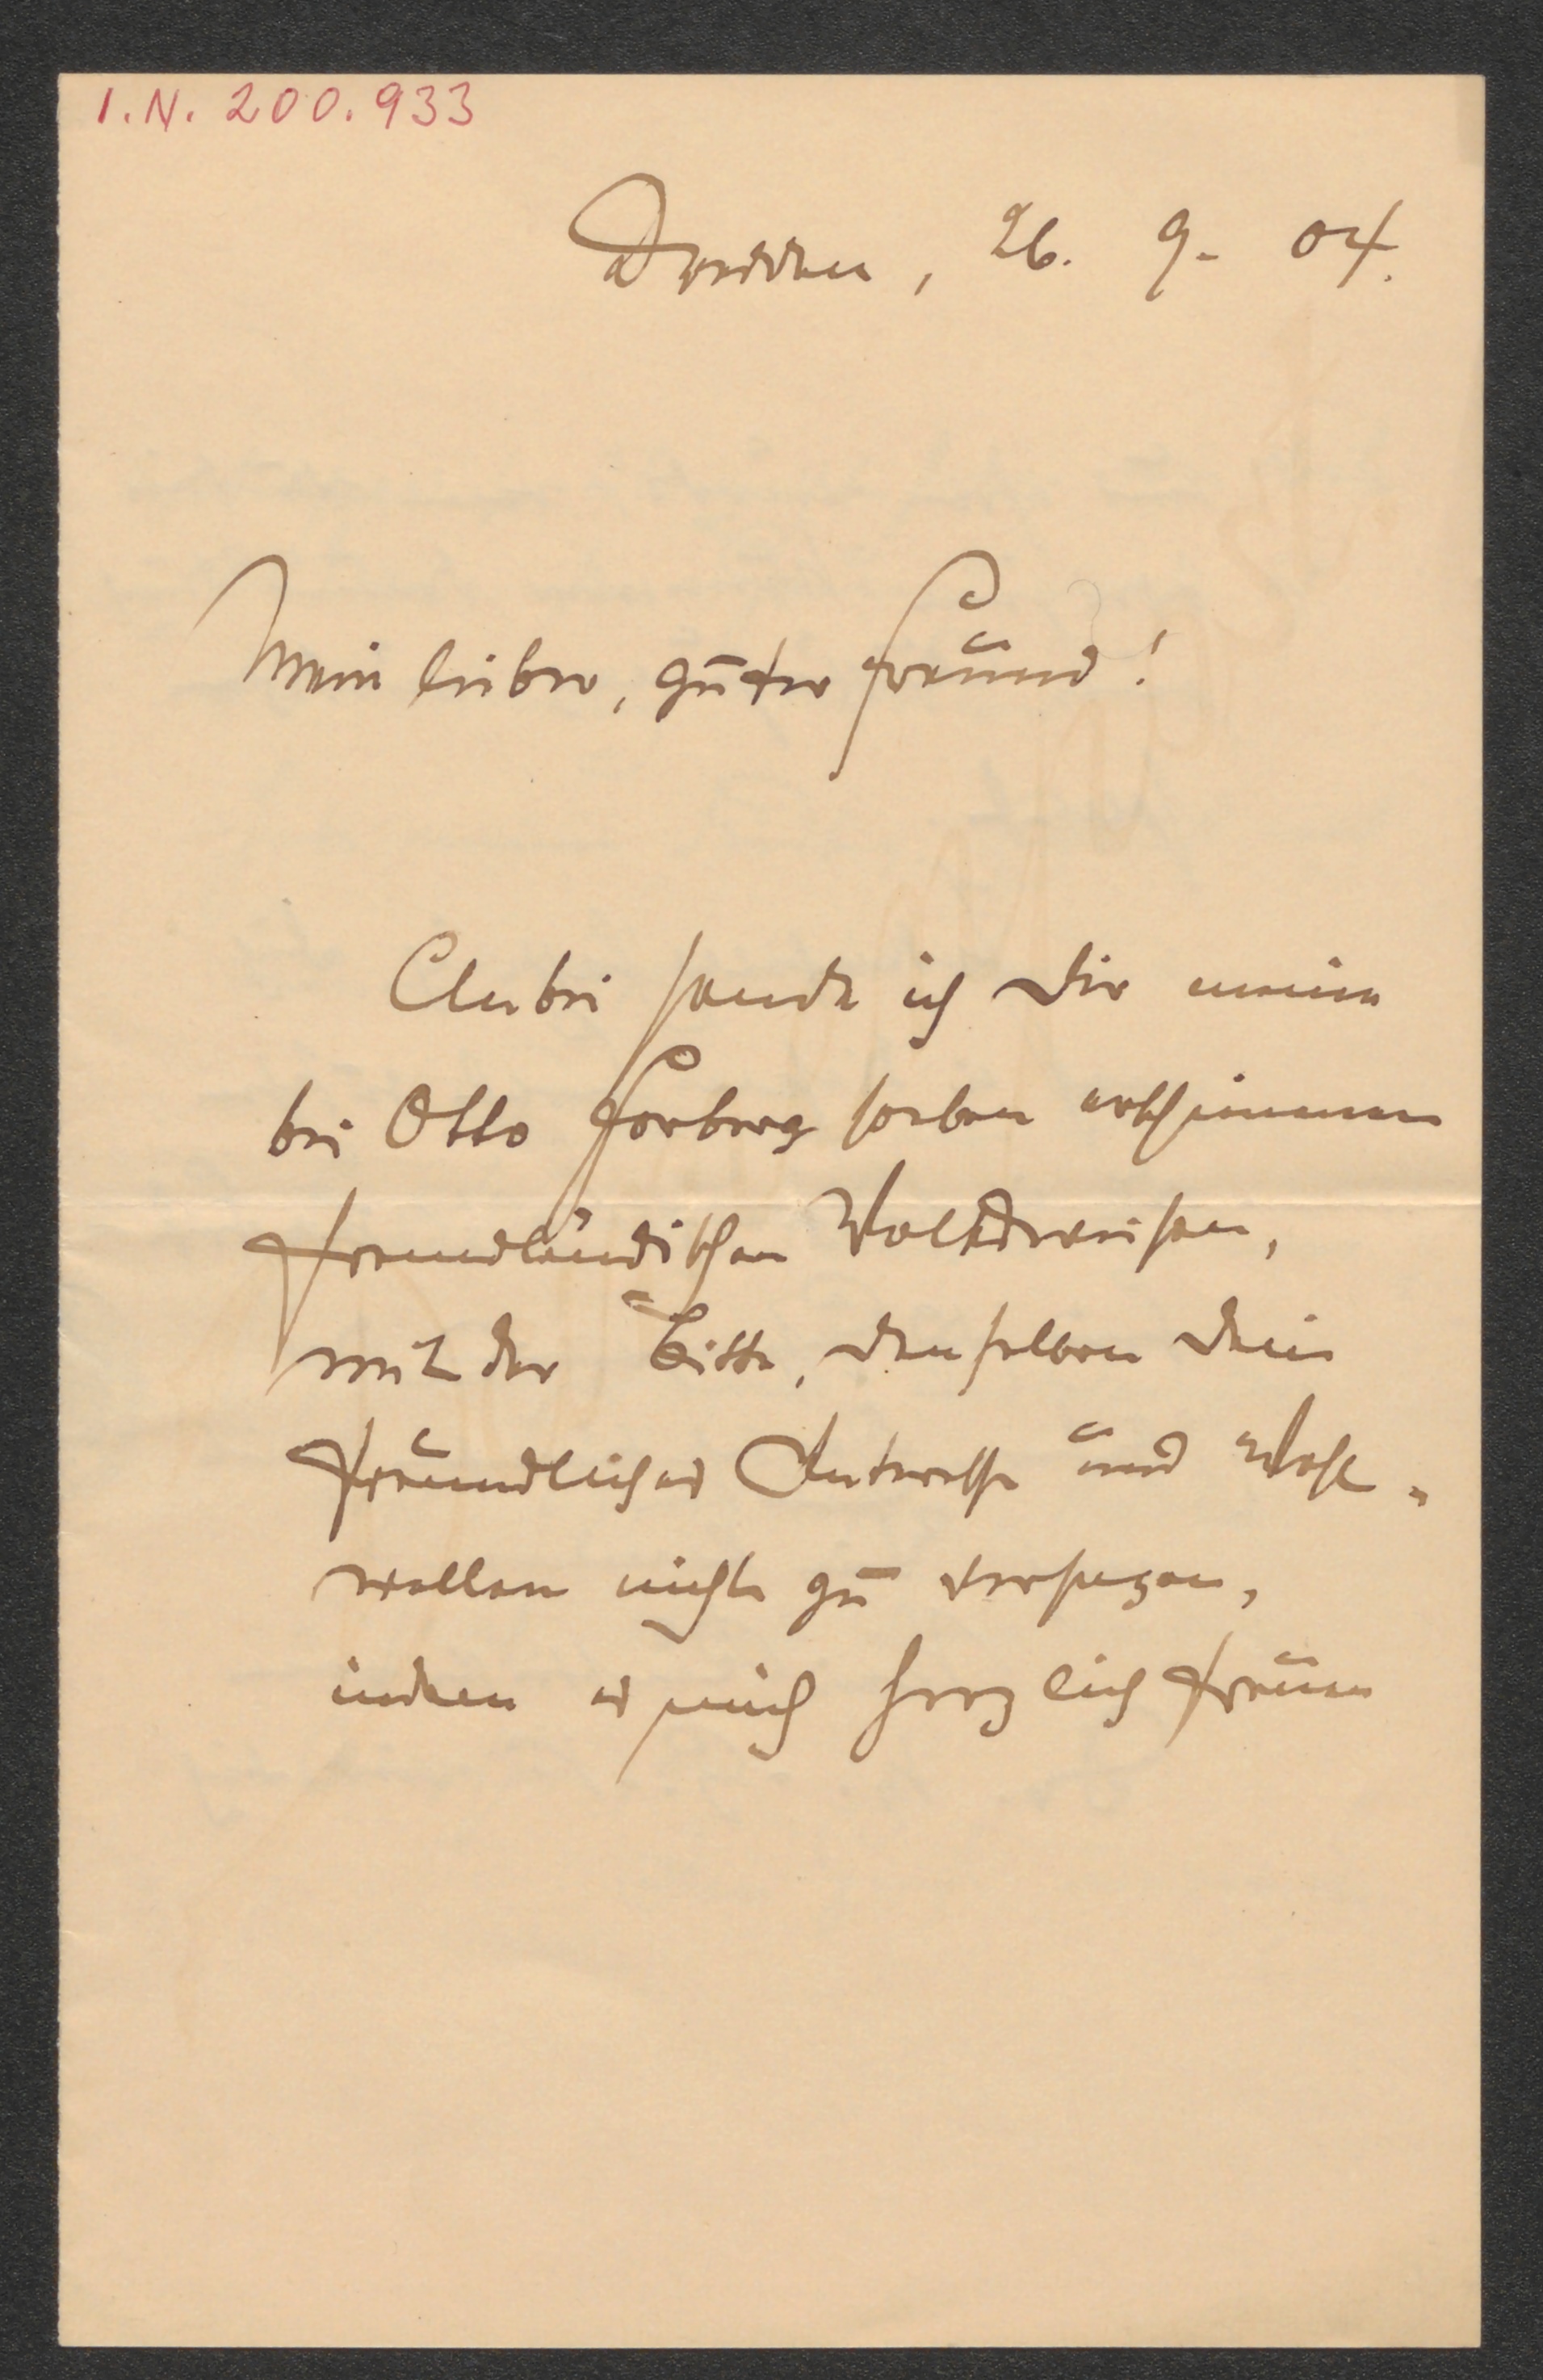 I.N. 200.933
Dresden, 26. 9. 04.
Mein lieber, guter Freund!
Anbei sende ich Dir meine
bei Otto Forberg soeben erschienenen
fremdländischen Volksweisen,
mit der Bitte, denselben Dein
freundliches Interesse und Wohl-
wollen nicht zu versagen,
indem es mich herzlich freuen